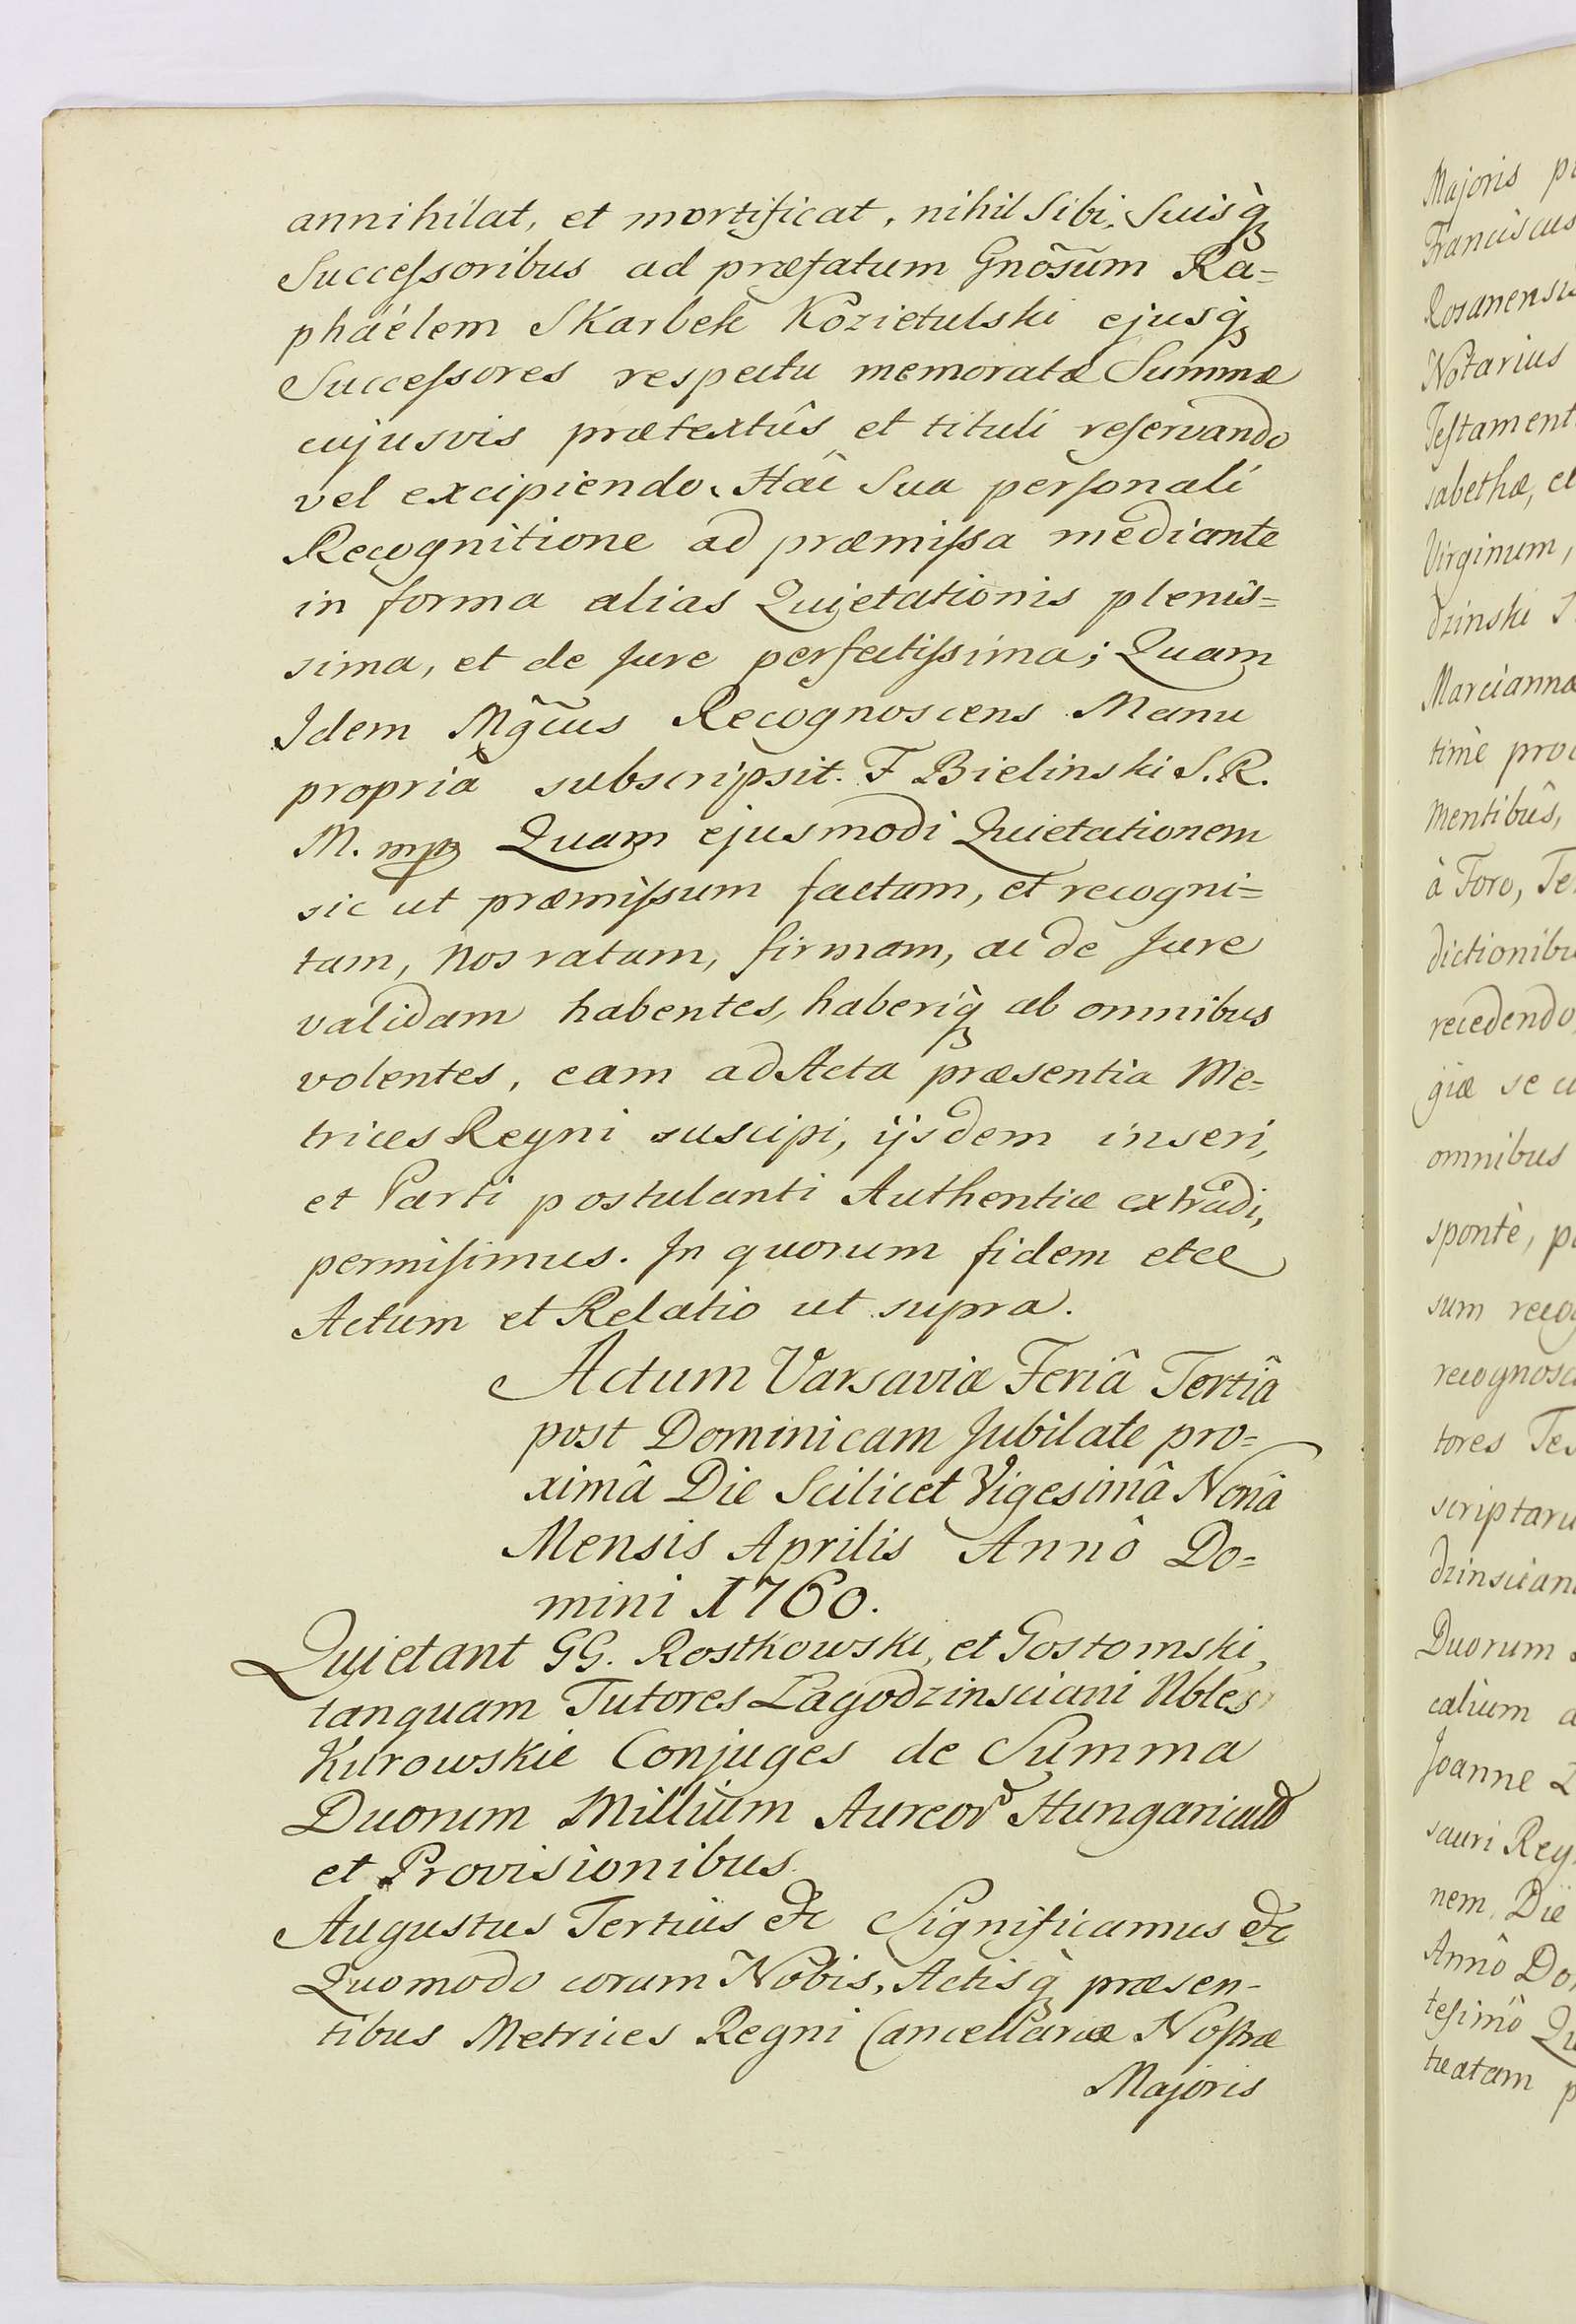 annihilat, et mortificat, nihil Sibi, Suisq̀
Successoribus ad præfatum Gnõsũm Ra=
phaélem Skarbek Kozietulski ejusq̀
Successores respectu memoratæ Summæ
cujusvis prætextûs et tituli reservando
vel excipiendo. Hac Sua personali
Recognitione ad præmissa mediante
in forma alias Quietationis plenis=
sima, et de Jure perfectissima; Quam
Idem Mg̃cus Recognoscens Manu
propriâ subscripsit. F Bielinski S. R.
M. mp Quam ejusmodi Quietationem
sic ut præmissum factam, et recogni=
tam, Nos ratam, firmam, ac de Jure
validam habentes, haberiq̀ ab omnibus
volentes, eam ad Acta præsentia Me=
trices Regni suscipi, ijsdem inseri,
et Parti postulanti Authentice extradi,
permisimus. In quorum fidem etce
Actum et Relatio ut supra.
Actum Varsaviæ Feriâ Tertiâ
post Dominicam Jubilate pro=
ximâ Die Scilicet Vigesimâ Nonâ
Mensis Aprilis Annô Do=
mini 1760.
Quietant GG. Rostkowski, et Gostomski,
tanquam Tutores Lagodzinsciani Nbles
Kurowskie Conjuges de Summa
Duorum Millium Aureor Hungarical
et Provisionibus.
Augustus Tertius etc Significamus etc
Quomodo coram Nobis, Actisq̀ præsen-
tibus Metrices Regni Cancellariæ Nostræ
Majoris
Majoris
Franciscus
Rosanensis
Notarius
Testament
sabethæ, et
Virginum,
dzinski
Marciannæ
time
mentibûs,
à Foro,
dictionibu
recedendo
giæ se
omnibus
spontè,
sum recog
recognosc
tores
scriptaru
dzinscian
Duorum
calium
Joanne
sauri Reg
nem, Die
Annô Do
tesimô